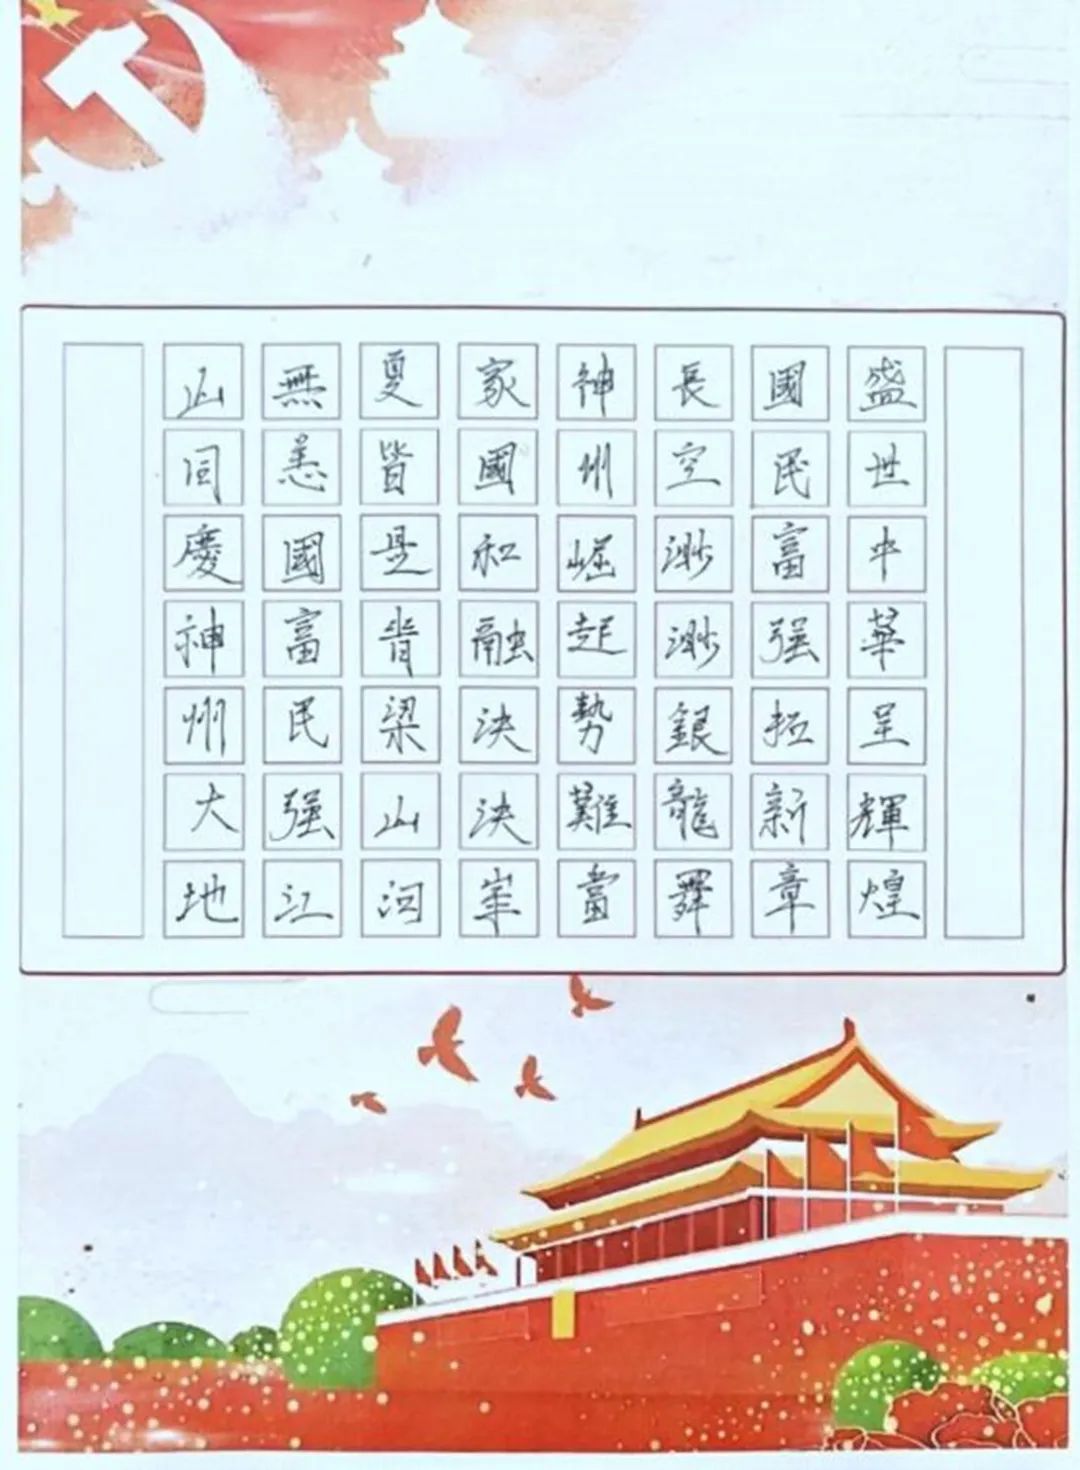 盛世中華呈輝煌
國民富强拓新章
長空渺渺銀龍舞
神州崛起勢難當
家國和融泱泱崋
夏皆是脊梁山河
無恙國富民强江
山同慶神州大地